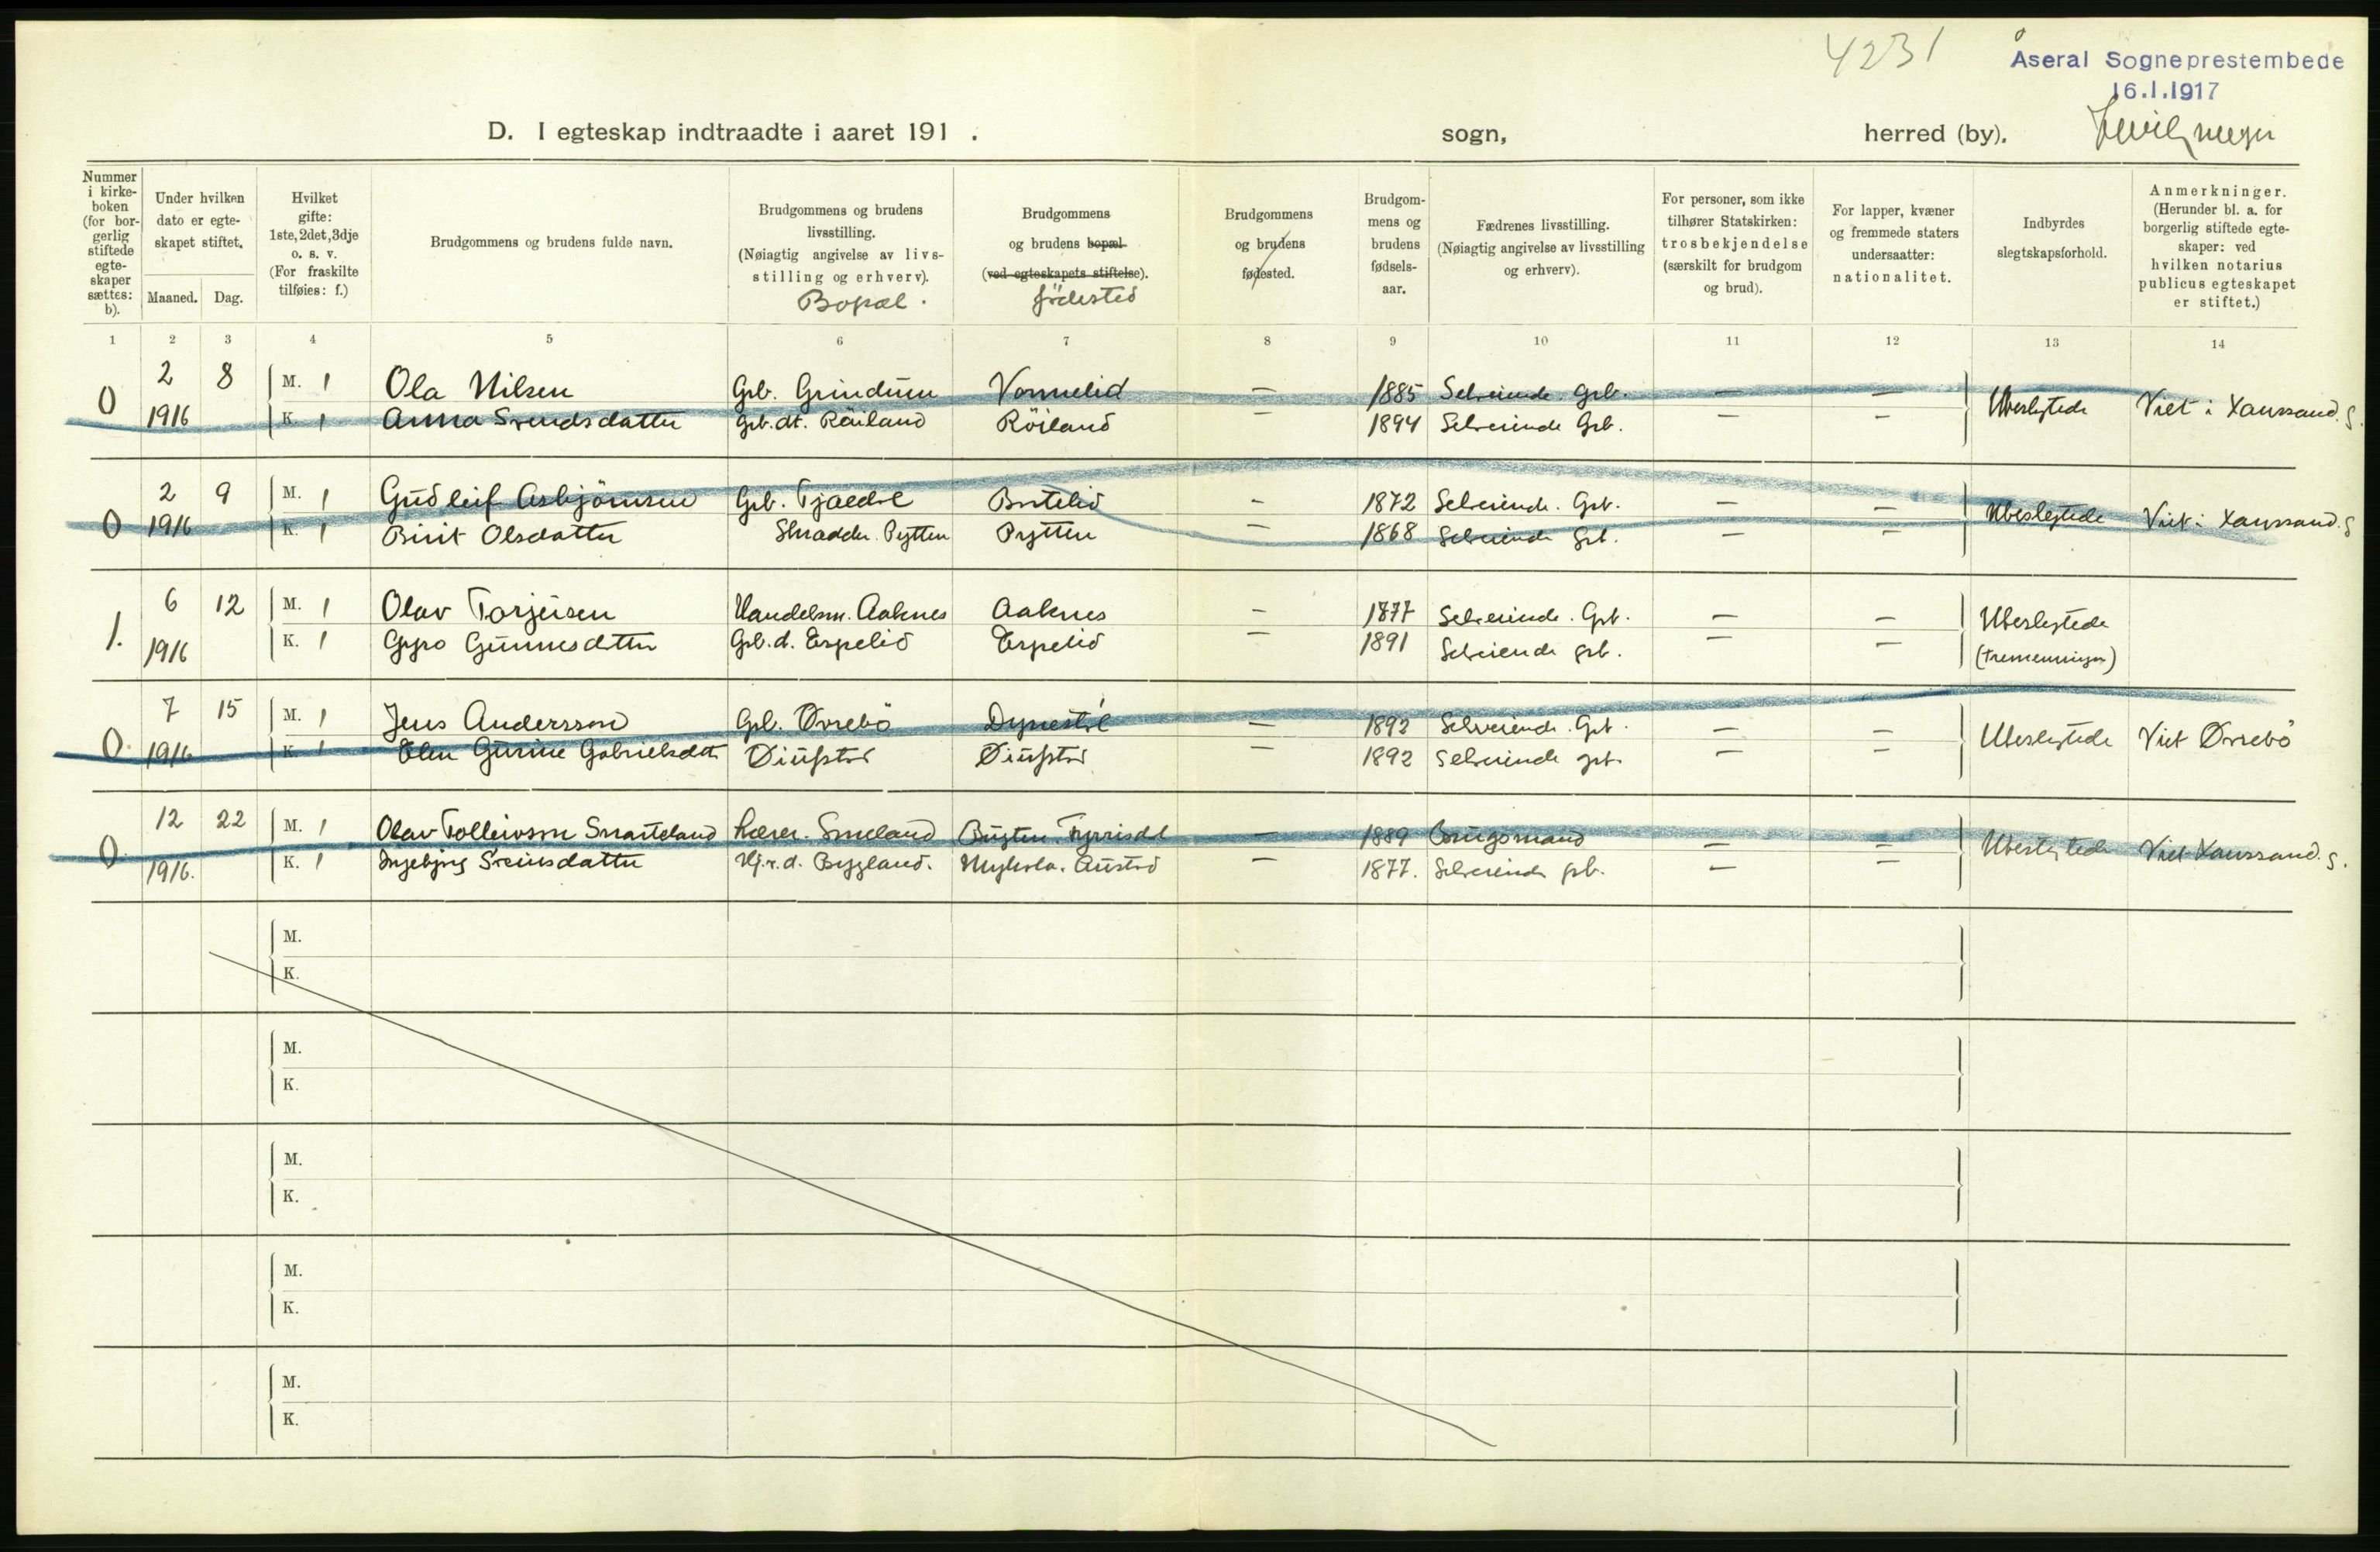 4231
Åseral Sogneprestembede
16.1.1917
D. I egteskap indtraadte i aaret 191 . sogn, herred (by).
Nummer i kirkeboken (for borgerlig stiftede egteskaper sættes: b).
Under hvilken dato er egteskapet stiftet.
Maaned. Dag.
Hvilket gifte: 1ste, 2det, 3dje o. s. v. (For fraskilte tilføies: f.)
Brudgommens og brudens fulde navn.
Brudgommens og brudens livsstilling. (Nøiagtig angivelse av livsstilling og erhverv).
Bopæl.
Brudgommens og brudens bopæl (ved egteskapets stiftelse).
födested
Brudgommens og brudens fødested.
Brudgommens og brudens fødselsaar.
Fædrenes livsstilling. (Nøiagtig angivelse av livsstilling og erhverv).
For personer, som ikke tilhører Statskirken: trosbekjendelse (særskilt for brudgom og brud).
For lapper, kvæner og fremmede staters undersaatter: nationalitet.
Indbyrdes slegtskapsforhold.
Anmerkninger. (Herunder bl. a. for borgerlig stiftede egteskaper: ved hvilken notarius publicus egteskapet er stiftet.)
1 2 3 4 5 6 7 8 9 10 11 12 13 14
0 2 8 M. 1 Ola Nilsen Grb. Grindum Vonnelid — 1885 Selveiende Grb. — — Ubeslegtede Viet i Xanssand. S.
1916 K. 1 Anna Svendsdatter Grb. dt. Röiland Röiland — 1894 Selveiende Grb. — —
0 2 9 M. 1 Gudleif Asbjörnsen Grb. Tjaldal Brutelid — 1872 Selveiende. Grb. — — Ubeslegtede Viet i Xanssand. S
1916 K. 1 Birit Olsdatter Skrædder. Pytten Pytten — 1868 Selveiende Grb. — —
1. 6 12 M. 1 Olav Torjeisen Handelsm. Aaknes Aaknes — 1877 Selveiende. Grb. — — Ubeslegtede
1916 K. 1 Gyro Gunnesdatter Grb. d. Espelid Espelid — 1891 Selveiende grb. — — (tremenninger)
0. 7 15 M. 1 Jens Anderssen Grb. Øvrebö Dynestöl — 1892 Selveiende. Grb. — — Ubeslegtede Viet Øvrebö
1916 K. 1 Elen Gurine Gabrielsdatt — 1892 Selveiende grb. — —
0. 12 22 M. 1 Olav Tolleivson Smaateland Lærer. Smeland — 1889 Brugsmand — — Ubeslegtede Viet Xanssand. S.
1916. K. 1 Ingebjörg Sveinsdatter Hj.v.d. Bygland. Austad — 1877. Selveiende grb. —
M.
K.
M.
K.
M.
K.
M.
K.
M.
K.